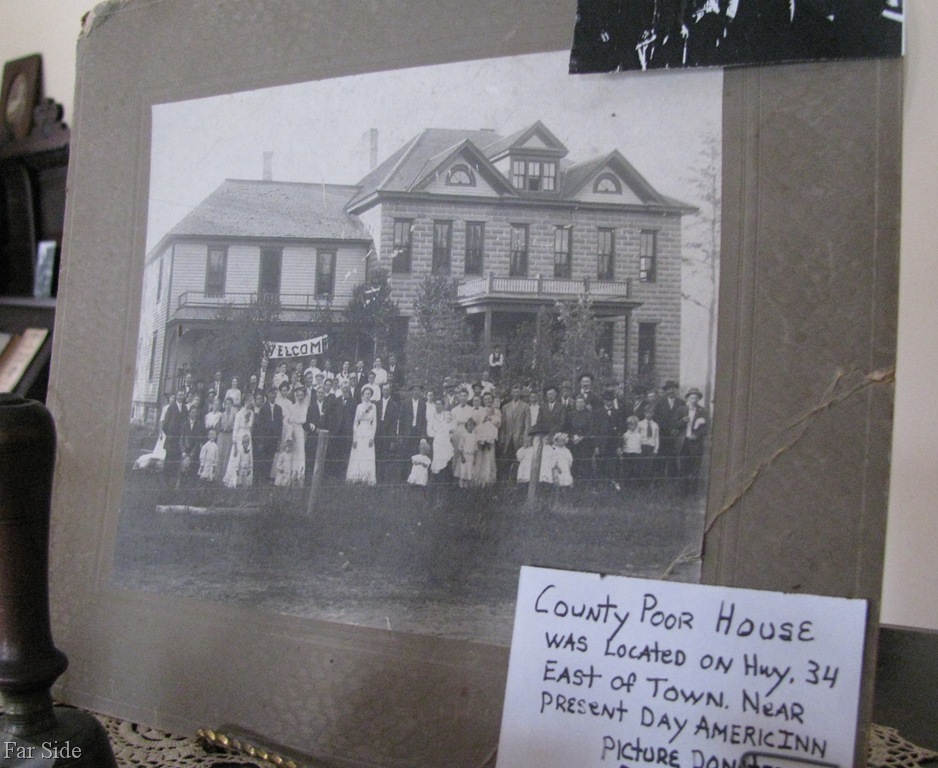 WELCOM
COUNTY POOR HOUSE
WAS LOCATED ON HWY. 34
EAST OF TOWN. NEAR
PRESENT DAY AMERICINN
PICTURE
Far Side